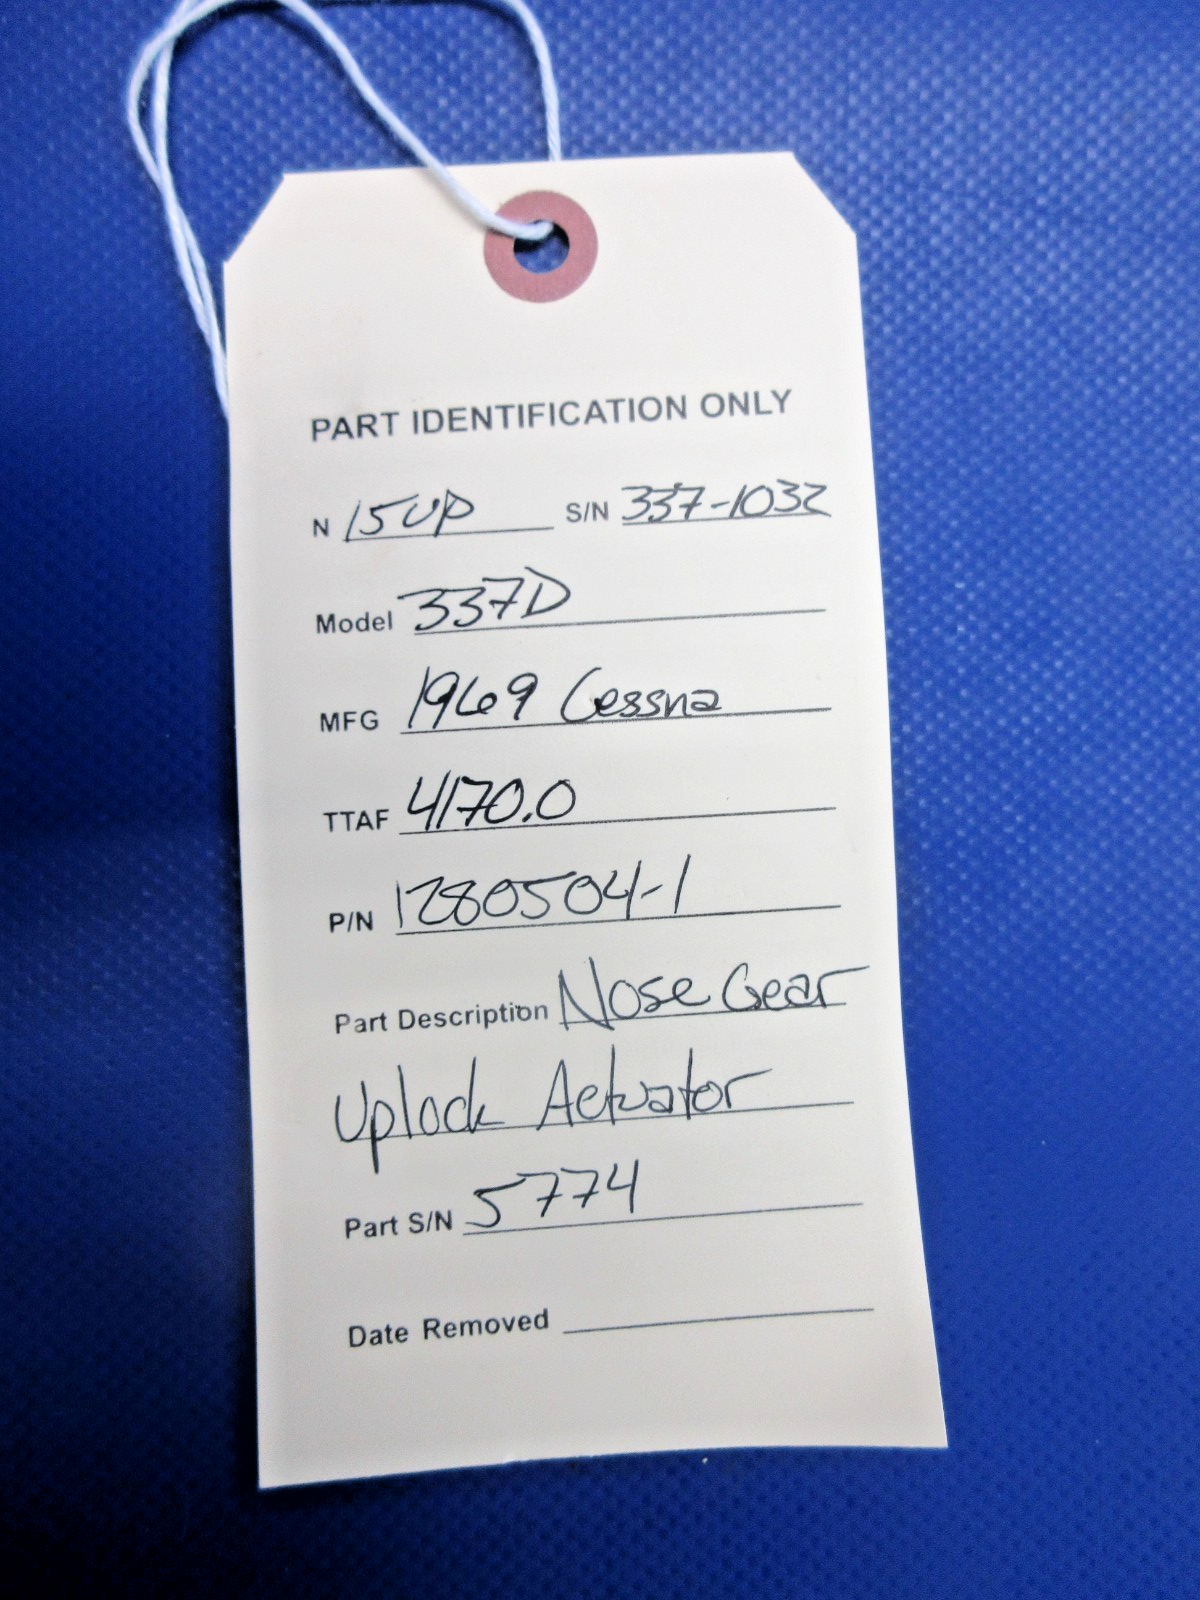 PART IDENTIFICATION ONLY
N 15UP S/N 337-1032
Model 337D
MFG 1969 Cessna
TTAF 4170.0
P/N 1280504-1
Part Description Nose Gear
Uplock Actuator
Part S/N 5774
Date Removed